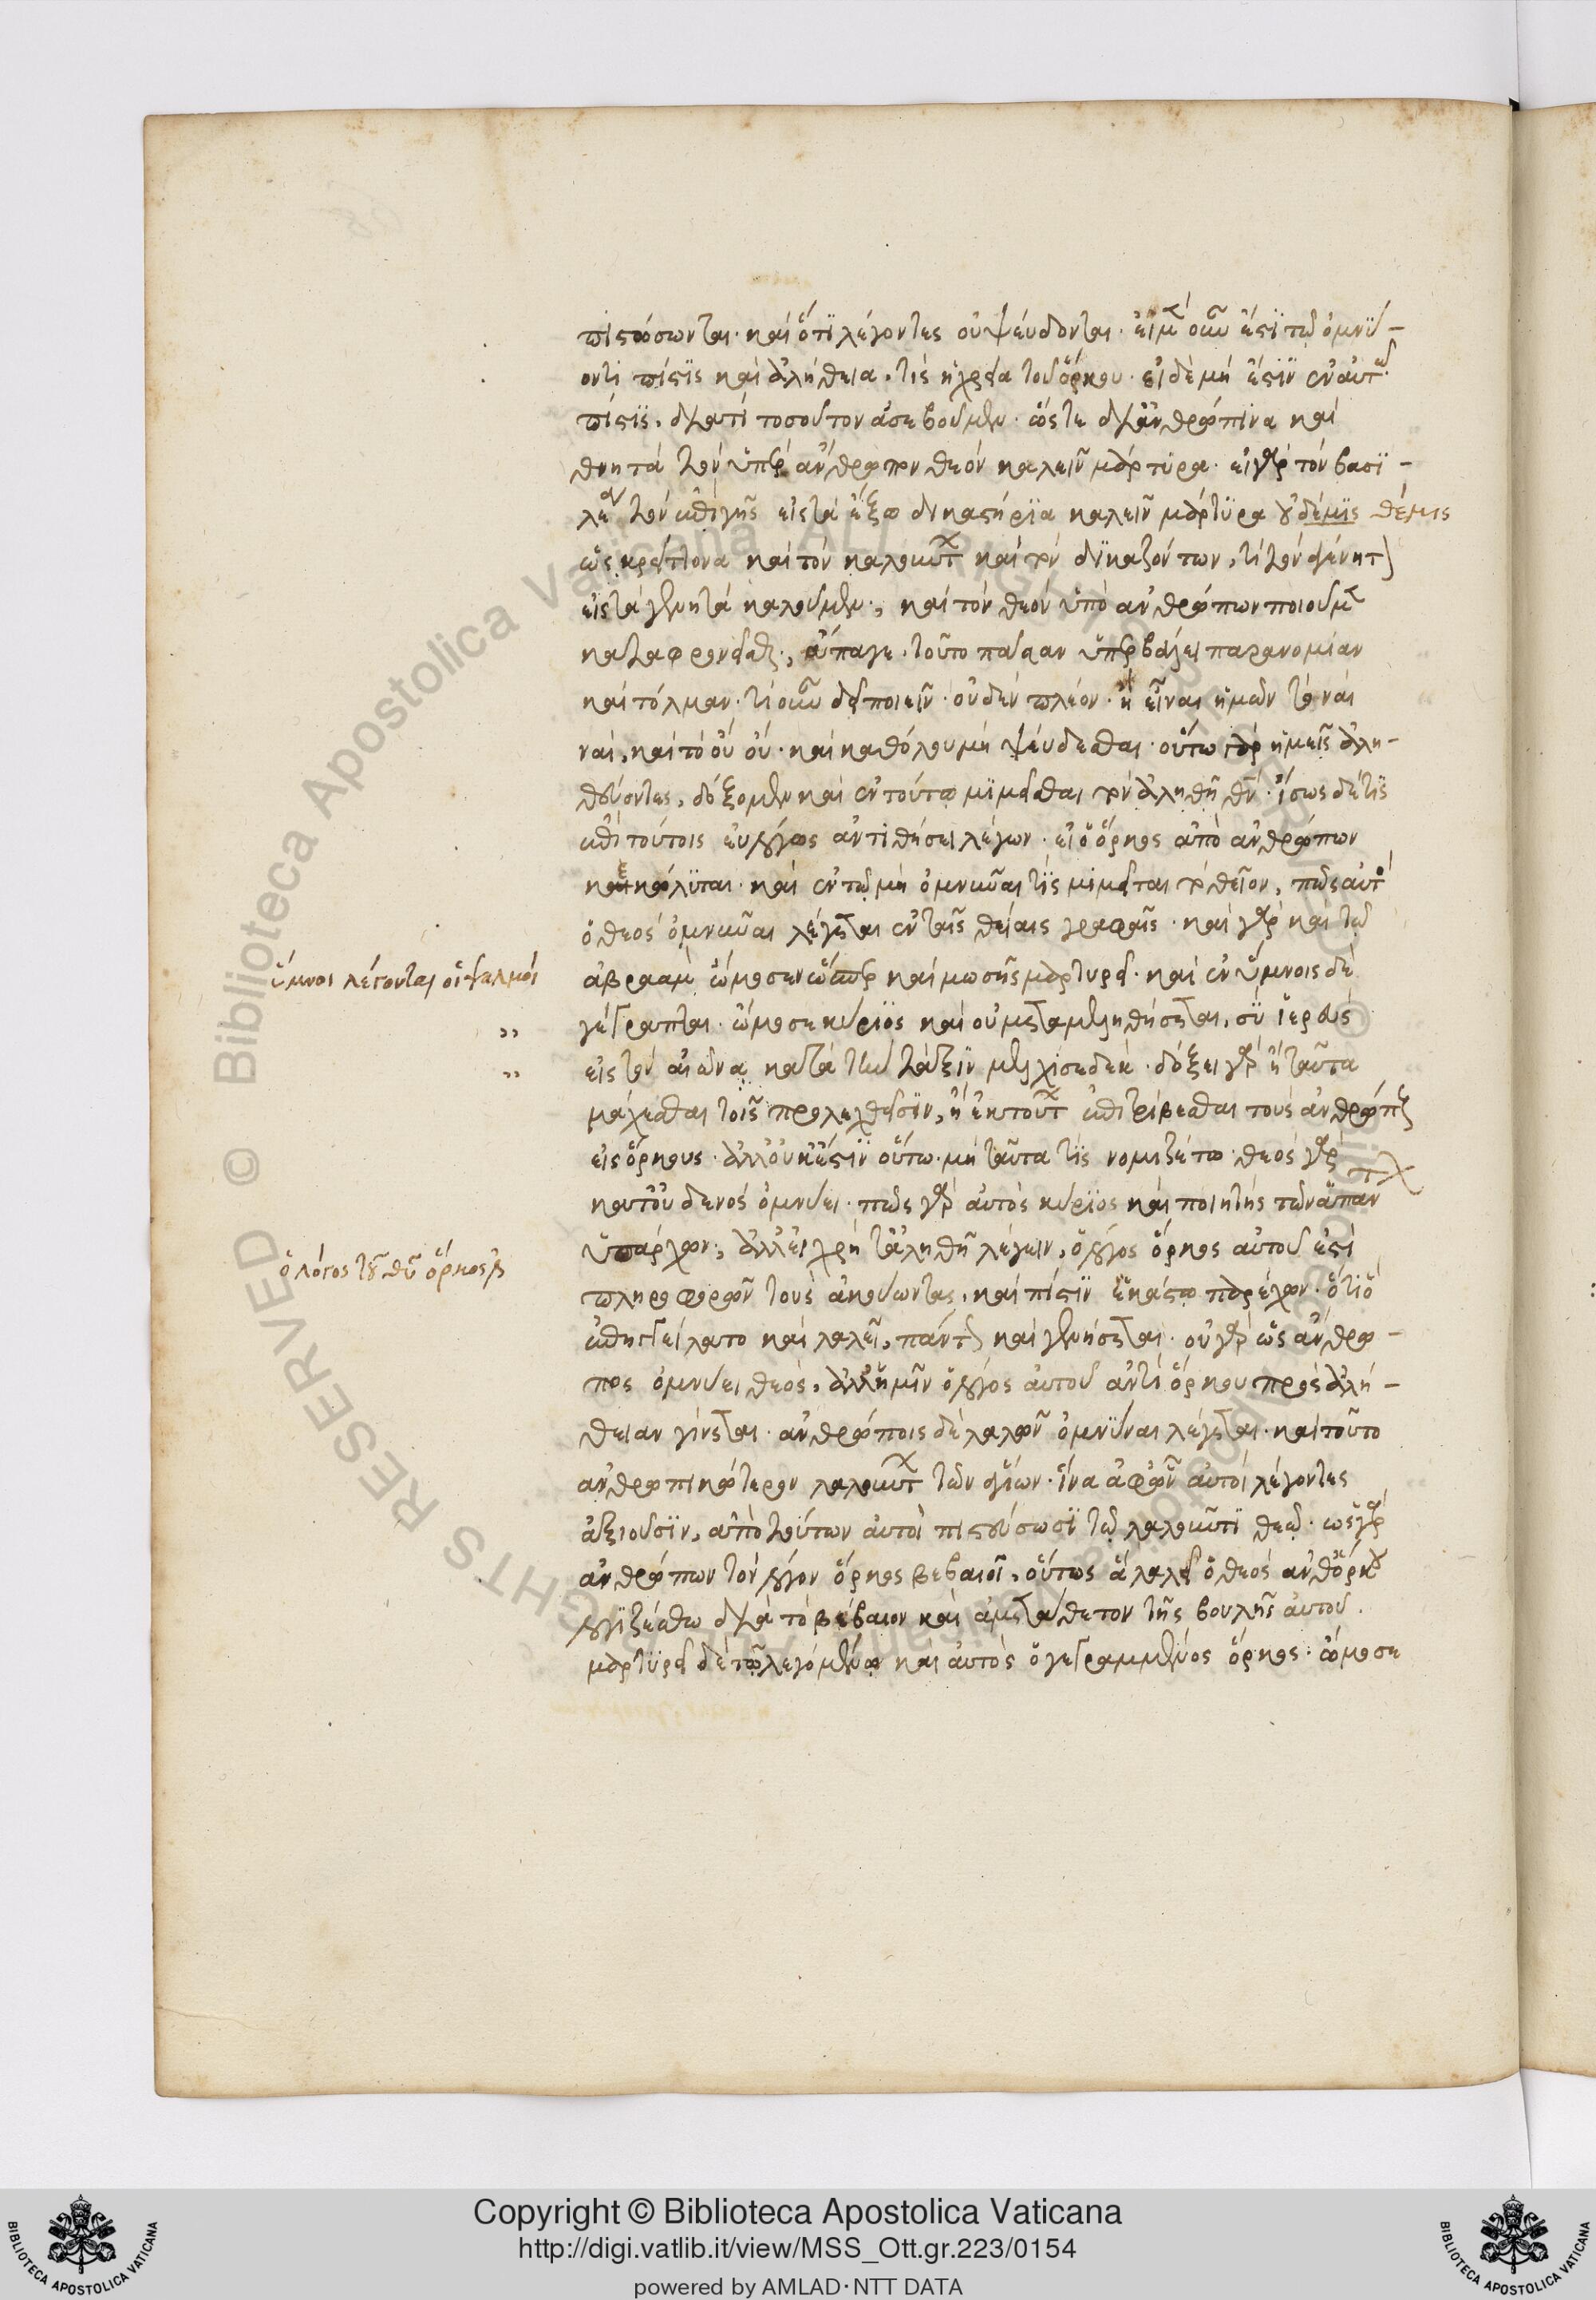 πιστώσωνται· καὶ ὅτι λέγοντες οὐ ψεύδονται· εἰ μὲν οὖν ἐστὶ τῷ ὀμνύ-
οντι πίστις καὶ ἀλήθεια, τίς ἡ χρεία τοῦ ὅρκου· εἰ δὲ μή ἐστιν ἐν αὐτῷ
πίστις, διατί τοσοῦτον ἀσεβοῦμεν· ὥστε δι' ἀνθρώπινα καὶ
θνητὰ τὸν ὑπὲρ ἄνθρωπον θεὸν καλεῖν μάρτυρα· εἰ γὰρ τὸν βασι-
λέα τὸν ἐπὶ γῆς εἰς τὰ ἔξω δικαστήρια καλεῖν μάρτυρα οὐ δέμις θέμις
ὡς κρείττονα καὶ τὸν καλούντων καὶ τῶν δικαζόντων, τί τὸν ἀγένητον
εἰς τὰ γενητὰ καλοῦμεν, καὶ τὸν θεὸν ὑπὸ ἀνθρώπων ποιοῦμεν
καταφρονεῖσθαι, ἄπαγε. τοῦτο πᾶσαν ὑπερβάλλει παρανομίαν
καὶ τόλμαν· τί οὖν δεῖ ποιεῖν· οὐδὲν πλέον· ἢ εἶναι ἡμῶν τὸ ναὶ
ναί, καὶ τὸ οὒ οὔ· καὶ καθόλου μὴ ψεύδεσθαι· οὕτω γὰρ ἡμεῖς ἀλη-
θεύοντες, δόξομεν καὶ ἐν τούτῳ μιμεῖσθαι τὸν ἀληθῆ θν· ἴσως δέ τις
ἐπὶ τούτοις εὐλόγως ἀντιθήσει λέγων· εἰ ὁ ὅρκος ἀπὸ ἀνθρώπων
κεκώλυται· καὶ ἐν τῷ μὴ ὀμνύναι τίς μιμεῖται τὸ θεῖον, πῶς αὐτὸς
ὁ θεὸς ὀμνύναι λέγεται ἐν ταῖς θείαις γραφαῖς· καὶ γὰρ καὶ τῷ
ὕμνοι λέγονται οἱ ψαλμοί ἀβραὰμ ὤμοσεν ὥσπερ καὶ μωσῆς μαρτυρεῖ· καὶ ἐν ὕμνοις δὲ
,, γέγραπται· ὤμοσε κύριος καὶ οὐ μεταμεληθήσεται, σὺ ἱερεὺς
,, εἰς τὸν αἰῶνα κατὰ τὴν τάξιν μελχισεδέκ· δόξει γὰρ ἢ ταῦτα
μάχεσθαι τοῖς προλεχθεῖσιν, ἢ ἐκ τούτων ἐπιτρίβεσθαι τοὺς ἀνθρώπους
εἰς ὅρκους· ἀλλ' οὐκ ἔστιν οὕτω· μὴ ταῦτά τις νομιζέτω· θεὸς γὰρ
κατ' οὐδενὸς ὀμνύει· πῶς γὰρ αὐτὸς κύριος καὶ ποιητὴς τῶν ἁπάντων
ὑπάρχων, ἀλλ' εἰ χρὴ τἀληθῆ λέγειν, ὁ λόγος ὅρκος αὐτοῦ ἐστὶ
ὁ λόγος τοῦ θυ ὅρκος ἐστὶ πληροφορῶν τοὺς ἀκούοντας, καὶ πίστιν ἑκάστῳ παρέχων· ὅτι ὃ
ἐπηγγείλατο καὶ λαλεῖ, πάντως καὶ γενήσεται· οὐ γὰρ ὡς ἄνθρω-
πος ὀμνύει θεός, ἀλλ' ἡμῖν ὁ λόγος αὐτοῦ ἀντὶ ὅρκου πρὸς ἀλή-
θειαν γίνεται· ἀνθρώποις δὲ λαλῶν ὀμνύναι λέγεται· καὶ τοῦτο
ἀνθρωπικώτερον λαλούντων τῶν ἁγίων· ἵνα ἀφ' ὧν αὐτοὶ λέγοντες
ἀξιοῦσιν, ἀπὸ τούτων αὐτοὶ πιστεύσωσι τῷ λαλοῦντι θεῷ· ὡς γὰρ
ἀνθρώπων τὸν λόγον ὅρκος βεβαιοῖ, οὕτως ἃ λαλεῖ ὁ θεὸς ἀνθ' ὅρκου
λογιζέσθω διὰ τὸ βέβαιον καὶ ἀμετάθετον τῆς βουλῆς αὐτοῦ.
μαρτυρεῖ δὲ τῷ λεγομένῳ καὶ αὐτὸς ὁ γεγραμμένος ὅρκος· ὤμοσε
Copyright © Biblioteca Apostolica Vaticana
http://digi.vatlib.it/view/MSS_Ott.gr.223/0154
powered by AMLAD·NTT DATA